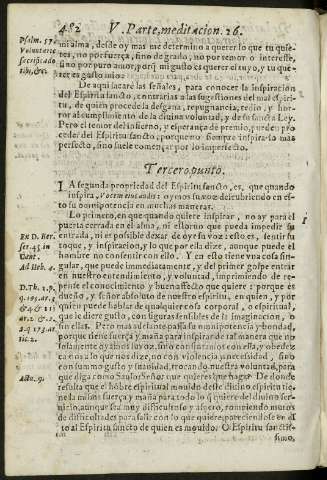 482 V. Parte, meditacion. 26.
Psalm. 57.
Voluntarie
sacrificabo
tibi, &c.
mi alma, desde oy mas me determino a querer lo que tu quisie-
res, no por fuerça, sino de grado, no por temor o interesse,
sino por puro amor, porque mi gusto es querer el tuyo, y tu que-
rer es gusto mio.
De aqui sacarè las señales, para conocer la inspiracion
del Espiritu sancto, contrarias a las sugestiones del mal espiri-
tu, de quien procede la desgana, repugnancia, tedio, y hor-
ror al cumplimiento de la divina voluntad, y de su sancta Ley.
Pero el temor del infierno, y esperança de premio, pueden pro
ceder del Espiritu sancto; porque no siempre inspira lo mas
perfecto, sino suele començar por lo imperfecto.
Tercero punto.
LA segunda propriedad del Espiritu sancto, es, que quando
inspira, Vocem eius audis: oymos su voz descubriendo en es-
to su omnipotencia en muchas maneras.
1
Ex D. Ber.
ser. 45. in
Cent.
Ad Heb. 4.
D. Th. 1. p.
q. 105. ar. 3
& 4. & 111
ar. 2. & 1. 2.
q. 173. ar-
tic. 2.
Acto. 9.
Lo primero, en que quando quiere inspirar, no ay para el
puerta cerrada en el alma, ni estorvo que pueda impedir su
entrada, ni es posible dexar de oyr su voz: esto es, sentir su
toque, y inspiracion, y lo que por ella dize, aunque puede el
hombre no consentir con ello. Y en esto tiene una cosa sin-
gular, que puede immediatamente, y del primer golpe entrar
en nuestro entendimiento, y voluntad, imprimiendo de re-
pente el conocimiento y buena affecto que quiere: porque es
dueño, y señor absoluto de nuestro espiritu, en quien, y por
quien puede hablar de qualquier cosa corporal, o espiritual,
que le diere gusto, con figuras sensibles de la imaginacion, o
sin ellas. Pero mas adelante passa su omnipotencia y bondad,
porque tiene fuerça y maña para inspirar de tal manera que no
solamente oyamos su voz, sino consintamos con ella, y obedez
camos a lo que nos dize, no con violencia ni necessidad, sino
con summo gusto y suavidad, trocando nuestra voluntad, para
que diga como Saulo: Señor que quereys que haga? De donde
resulta que el hõbre espiritual movido deste divino espiritu tie-
ne la misma fuerça y maña para todo lo que quiere del divino ser-
vicio, aunque sea muy dificultoso y aspero, rompiendo muros
de dificultades para salir con lo que quiere, pareciendose en es
to al Espiritu sancto de quien es movido. O Espiritu sanctis-
simo,